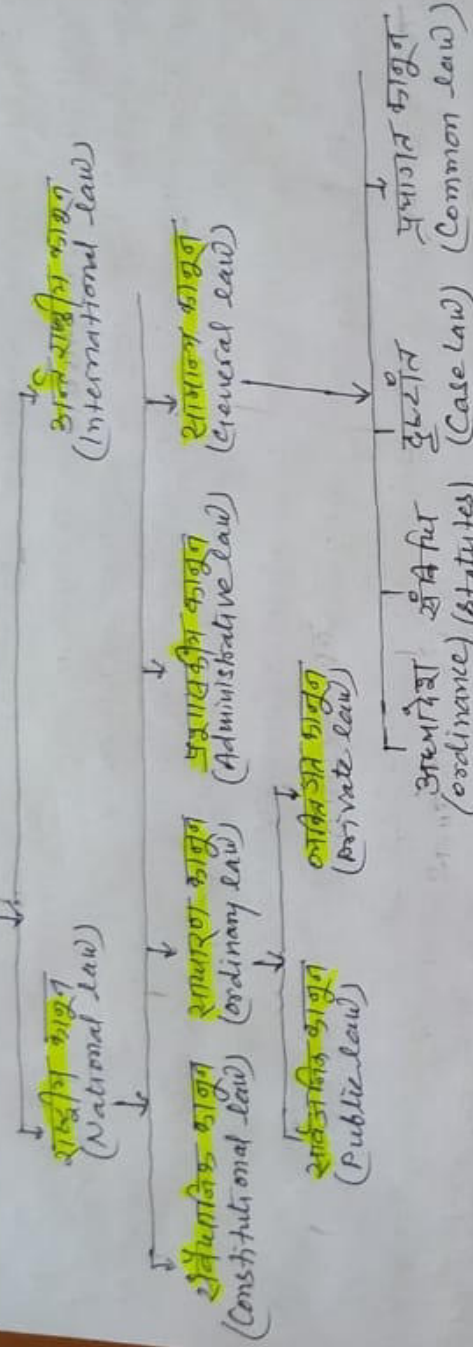 राष्ट्रीय कानून
(National law)
अन्तर्राष्ट्रीय कानून
(International law)
संवैधानिक कानून
(Constitutional law)
साधारण कानून
(ordinary law)
प्रशासकीय कानून
(Administrative law)
सामान्य कानून
(General law)
सार्वजनिक कानून
(Public law)
व्यक्तिगत कानून
(Private law)
अध्यादेश
(ordinance)
संविधि
(Statutes)
दृष्टांत
(Case Law)
प्रथागत कानून
(Common law)